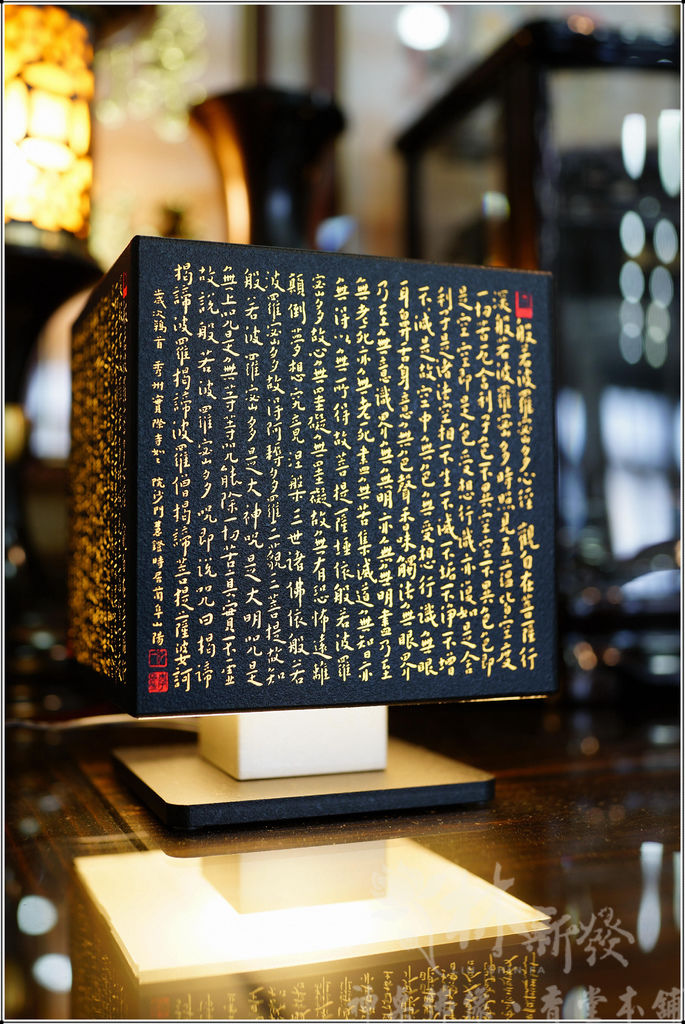 般若波羅蜜多心經 觀自在菩薩行
深般若波羅蜜多時照見五蘊皆空度
一切苦厄舍利子色不異空空不異色色即
是空空即是色受想行識亦復如是舍
利子是諸法空相不生不滅不垢不淨不增
不減是故空中無色無受想行識無眼
耳鼻舌身意無色聲香味觸法無眼界
乃至無意識界無無明亦無無明盡乃至
無老死亦無老死盡無苦集滅道無智亦
無得以無所得故菩提薩埵依般若波羅
蜜多故心無罣礙無罣礙故無有恐怖遠離
顛倒夢想究竟涅槃三世諸佛依般若
波羅蜜多故得阿耨多羅三藐三菩提故知
般若波羅蜜多是大神咒是大明咒是
無上咒是無等等咒能除一切苦真實不虛
故說般若波羅蜜多咒即說咒曰揭諦
揭諦波羅揭諦波羅僧揭諦菩提薩婆訶
歲次鶉首 秀州實際寺如〻院沙門慧證時居莆阜山陽
新發
香堂本舖